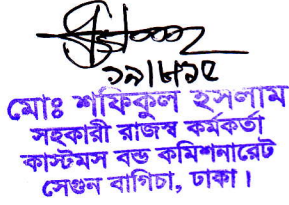 ১৯/৮/১৫
মোঃ শফিকুল ইসলাম
সহকারী রাজস্ব কর্মকর্তা
কাস্টমস বন্ড কমিশনারেট
সেগুন বাগিচা, ঢাকা।